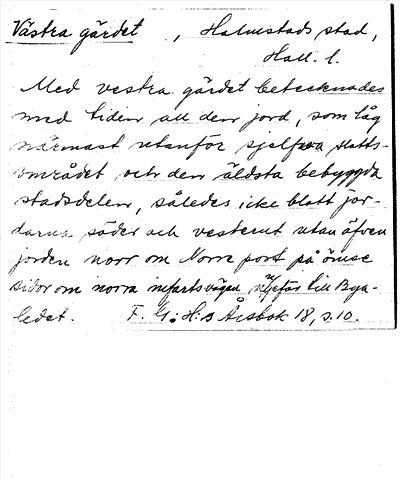 Västra gärdet , Halmstads stad,
Hall. l.
Med vestra gärdet betecknades
med tiden all den jord, som låg
närmast utanför sjelfva slotts-
området och den äldsta bebyggda
stadsdelen, således icke blott jor-
darna söder och vesterut utan äfven
jorden norr om Norre port på ömse
sidor om norra infartsvägen till Bya-
ledet. F. G. H:s Årsbok 18, s. 10.